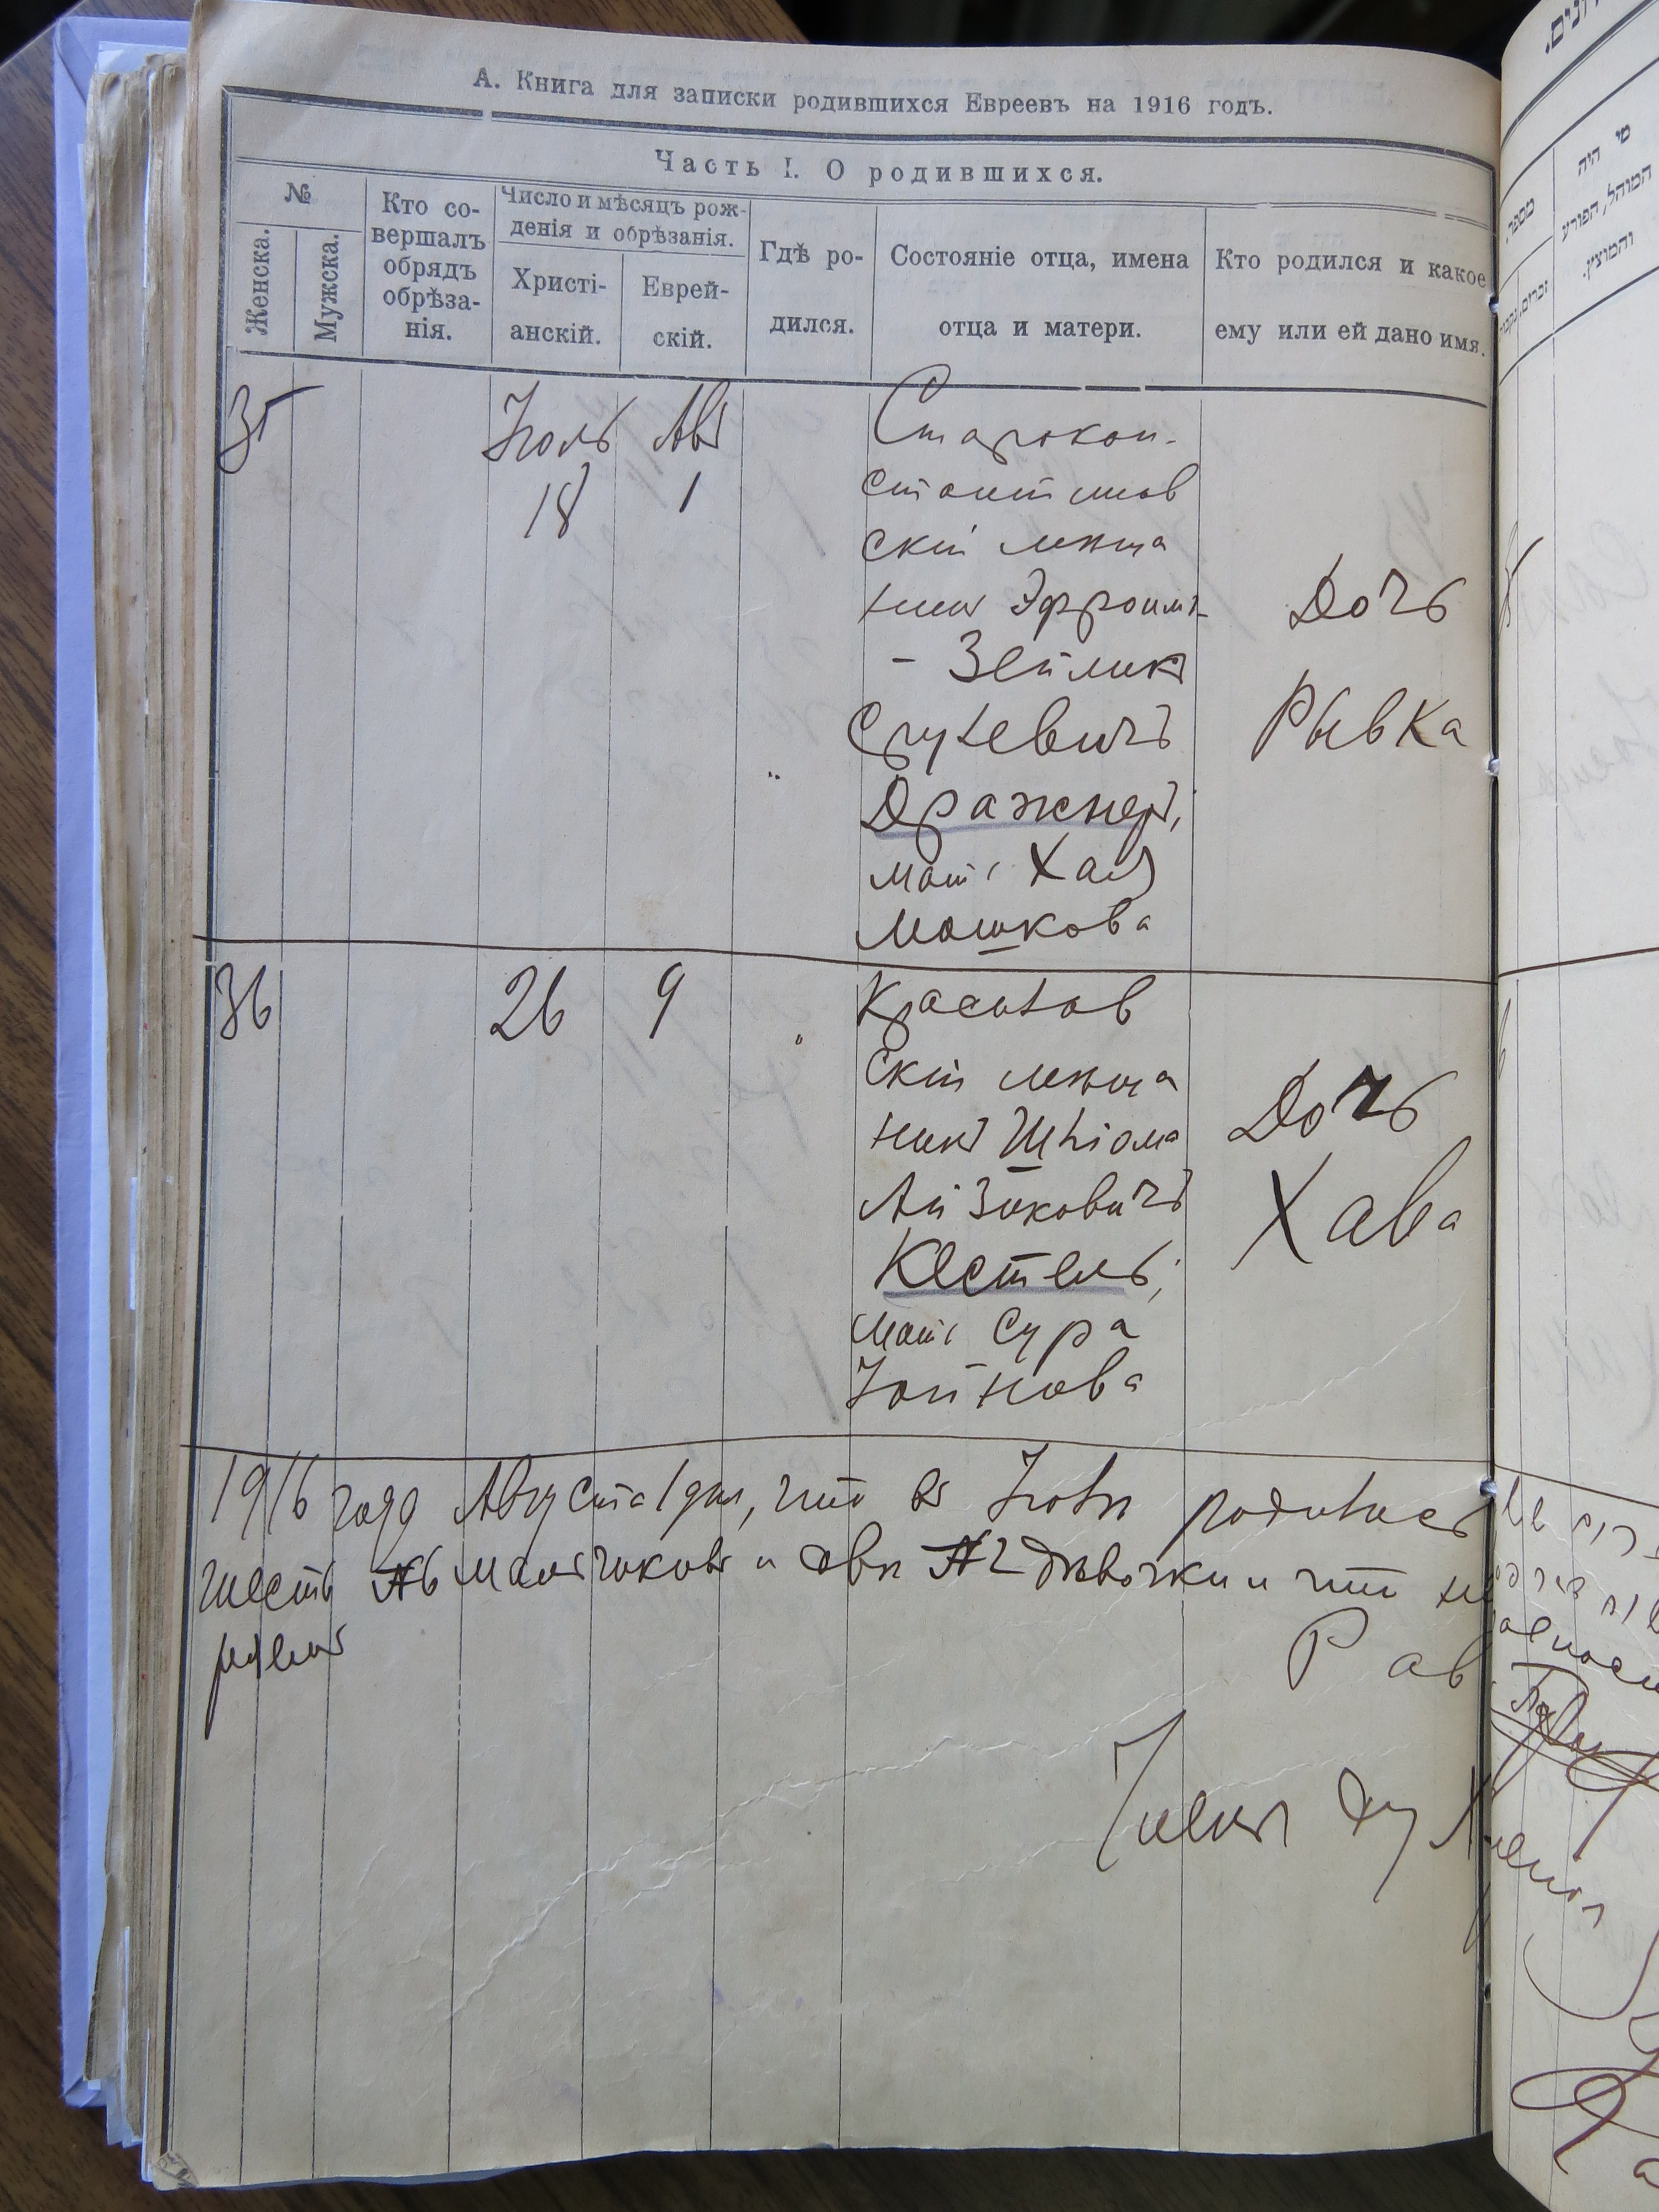 А. Книга для записки родившихся Евреевъ на 1916 годъ.
Часть I. О родившихся.
№
Женска.
Мужска.
Кто со-
вершалъ
обрядъ
обрѣза-
нія.
Число и мѣсяцъ рож-
денія и обрѣзанія.
Христі-
анскій.
Еврей-
скій.
Гдѣ ро-
дился.
Состояніе отца, имена
отца и матери.
Кто родился и какое
ему или ей дано имя.
35
Іюль
18
Авъ
1
Старокон-
стантинов
скій мѣща
нинъ Эфроимъ
- Зейликъ
Срулевичъ
Дражнеръ,
мать Хая
Мошкова
Дочь
Рывка
36
26
9
Красилов
скій мѣща
нинъ Шліома
Айзиковичъ
Кестель,
мать Сура
Іойнова
Дочь
Хава
1916 года Августа 1 дня, что въ Іюлѣ родилось
шесть №6 мальчиковъ и двѣ №2 дѣвочки и что
Рав
מי היה
המוהל, הפורע
והמוצץ.
מספר.